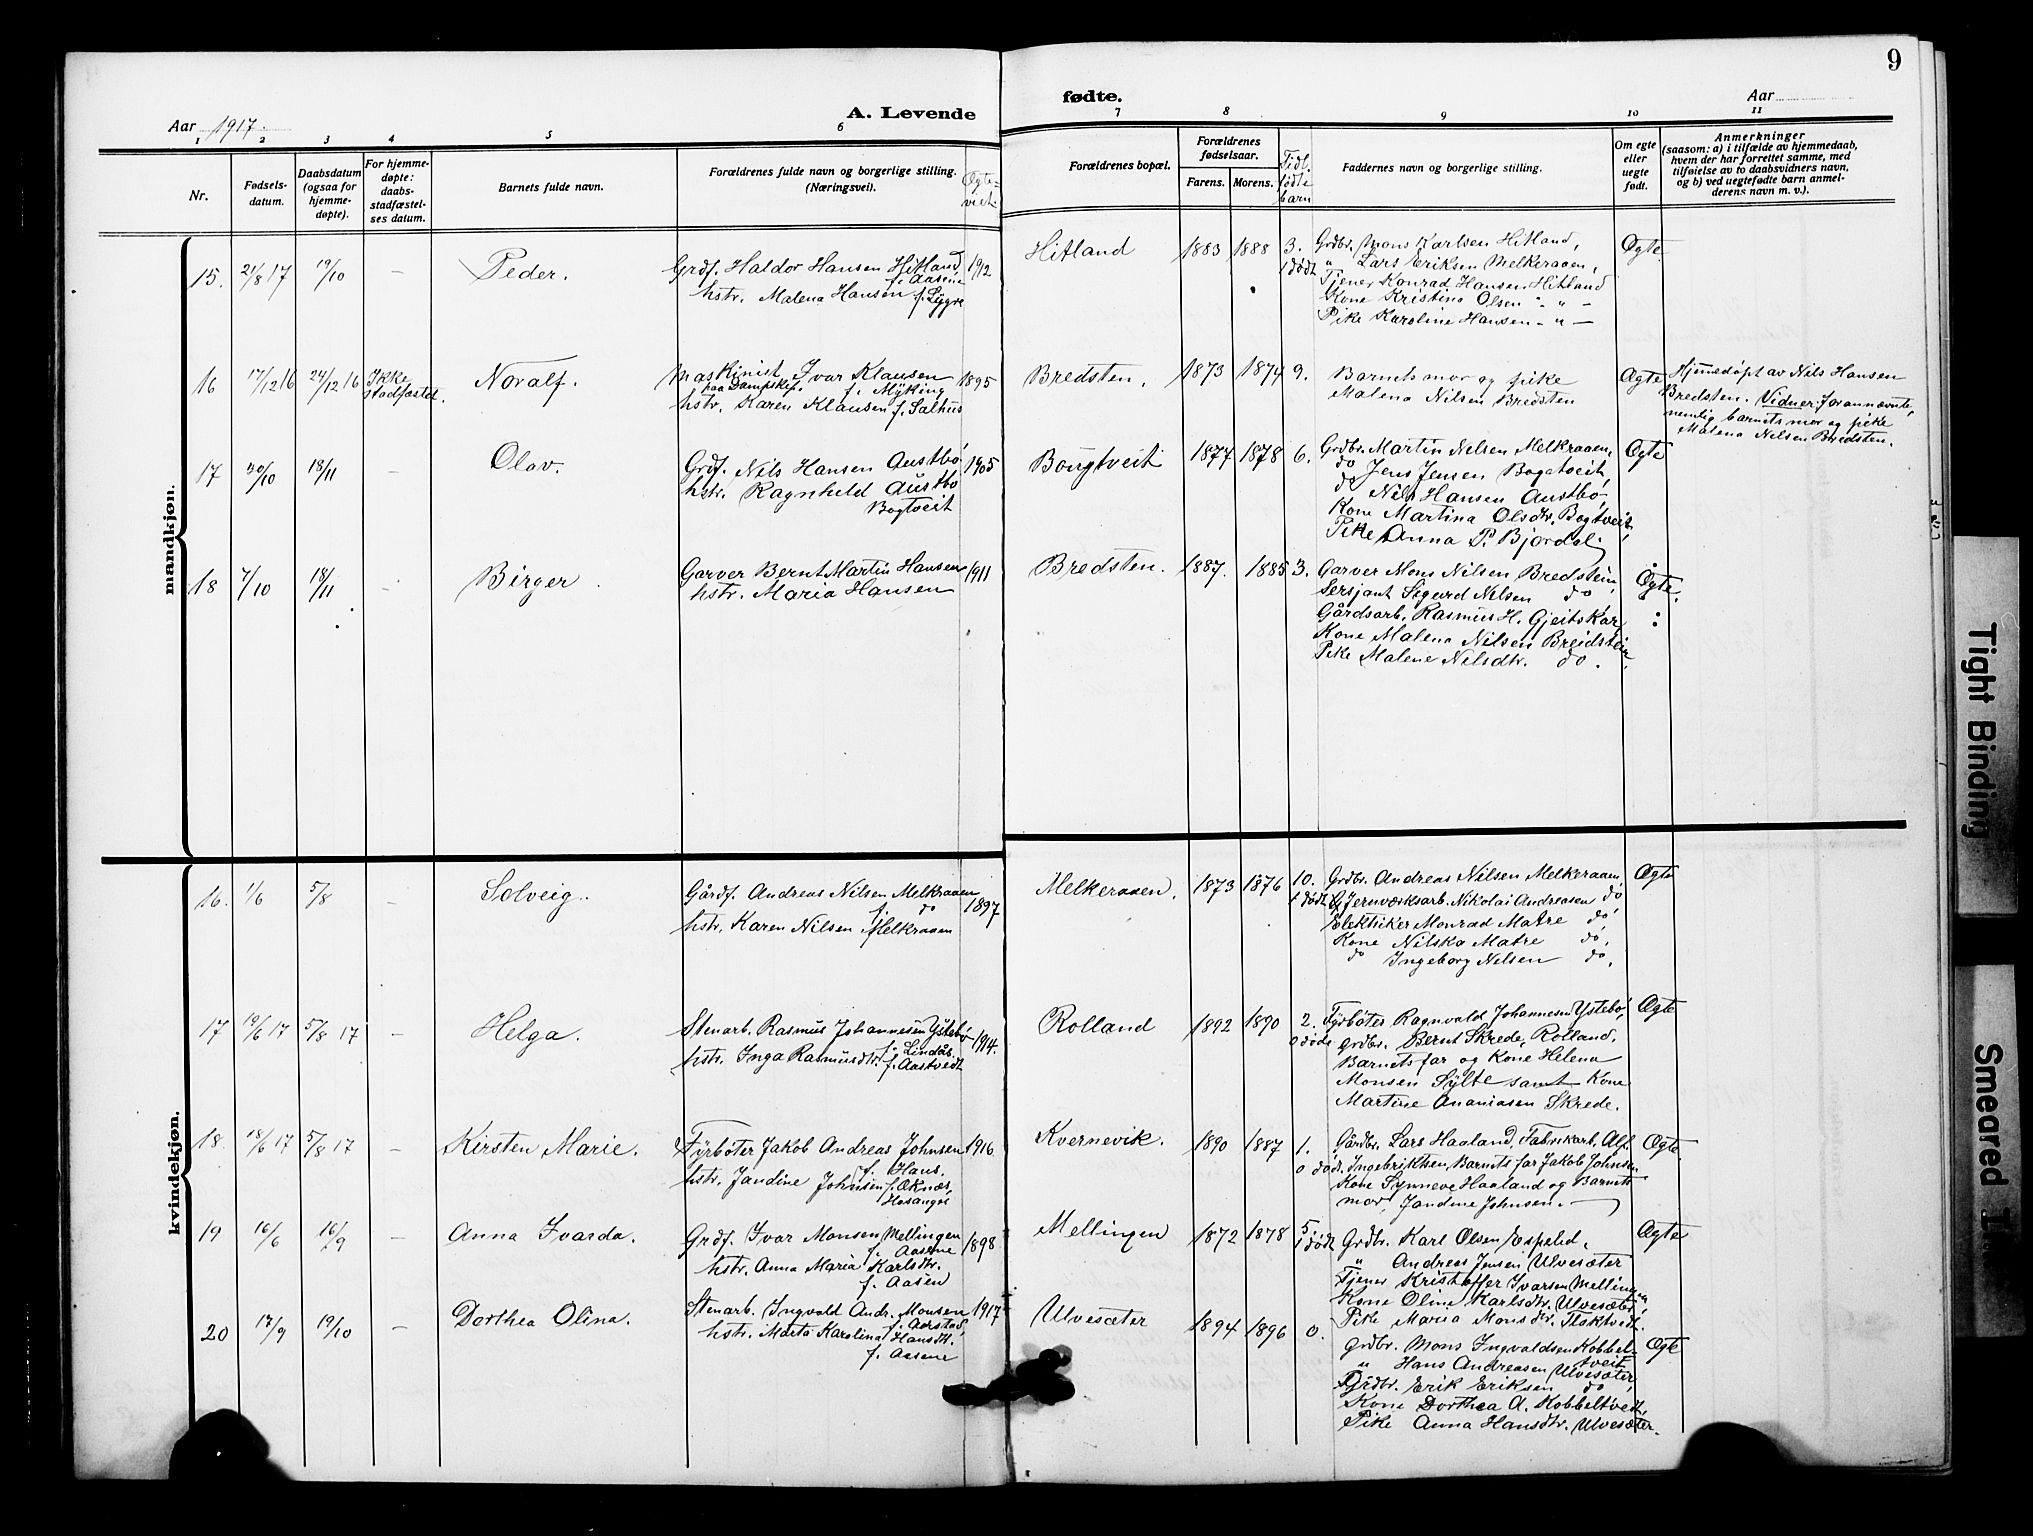 9
A. Levende
fødte.
Aar 1917.
Aar
1 2 3 4 5 6 7 8 9 10 11
Nr.
Fødsels-
datum.
Daabsdatum
(ogsaa for
hjemme-
døpte).
For hjemme-
døpte:
daabs-
stadfæstel-
ses datum.
Barnets fulde navn.
Forældrenes fulde navn og borgerlige stilling.
(Næringsvei).
Ægte-
viet.
Forældrenes bopæl.
Forældrenes
fødselsaar.
Farens. Morens.
Tidl.
fødte
barn
Faddernes navn og borgerlige stilling.
Om egte
eller
uegte
født.
Anmerkninger
(saasom: a) i tilfælde av hjemmedaab,
hvem der har forrettet samme, med
tilføielse av to daabsvidners navn,
og b) ved uegtefødte barn anmel-
derens navn m. v.).
mandkjøn.
15. 21/8 17 19/10 – Peder.
Grdf. Haldor Hansen Hitland 1912
f. Aasene
hstr. Malena Hansen f. Lygre
Hitland 1883 1888 3.
1 død
Grdbr. Mons Karlsen Hitland,
" Lars Eriksen Melkeraaen,
Tjener Konrad Hansen Hitland
Kone Kristina Olsen - " -
Pike Karoline Hansen - " -
Ægte
16 17/12 16 24/12 16 Ikke
stadfæstet.
Noralf.
Maskinist Ivar Klausen 1895
paa Dampskib. f. Myking
hstr. Karen Klausen f. Salhus
Bredsten. 1873 1874 9.
Barnets mor og pike
Malena Nilsen Bredsten
Ægte
Hjemmedøpt av Nils Hansen
Bredsten. Vidner: Forannævnte,
nemlig barnets mor og pike
Malena Nilsen Bredsten.
17 30/10 18/11 – Olav.
Grdf. Nils Hansen Austbø 1905
hstr. Ragnhild Austbø
Bogtveit
Bougtveit 1877 1878 6.
Grdbr. Martin Nilsen Melkraaen,
do Jens Jensen Bogatveit,
do Nils Hansen Austbø,
Kone Martina Olsdtr. Bogtveit,
Pike Anna P. Bjordal.
Ægte
18 7/10 18/11 – Birger.
Garver Bernt Martin Hansen 1911
hstr. Maria Hansen
Bredsten. 1887. 1885 3.
Garver Mons Nilsen Bredstein,
Sersjant Sigurd Nilsen do,
Gårdsarb. Rasmus H. Gjeitskar,
Kone Malena Nilsen Breidstein,
Pike Malene Nilsdtr. do.
Ægte.
kvindekjøn.
16. 1/6 5/8 – Solveig.
Gårdf. Andreas Nilsen Melkraaen
f. do 1897
hstr. Karen Nilsen Melkraaen
Melkeraaen. 1873 1876 10.
1 død
Grdbr. Andreas Nilsen Melkeraaen,
Jernværksarb. Nikolai Andreasen do
Elektriker Monrad Matre do,
Kone Nilska Matre do,
do Ingeborg Nilsen do,
Ægte
17 19/6 17 5/8 17 – Helga.
Stenarb. Rasmus Johannesen Ystebø
f. Lindås. 1914.
hstr. Inga Rasmusdtr. f. Aastvedt
Rolland 1892 1890 2.
0 døde
Fyrbøter Ragnvald Johannesen Ystebø,
Grdbr. Bernt Skrede, Rolland,
Barnets far og Kone Helena
Monsen Sylte samt Kone
Martine Ananiasen Skrede.
Ægte
18. 18/6 17 5/8 17 – Kirsten Marie.
Fyrbøter Jakob Andreas Johnsen 1916
f. Haus,
hstr. Jandine Johnsen f. Øknes,
Hosanger
Kvernevik. 1890 1887 1.
0 død.
Gårdbr. Lars Haaland, Fabrikarb. Alf.
Ingebriktsen Barnets far Jakob Johnsen
Kone Synneve Haaland og Barnets
mor, Jandine Johnsen. –
Ægte.
19 16/6 16/9 Anna Ivarda.
Grdf. Ivar Monsen Mellingen
f. Aasene 1898
hstr. Anna Maria Karlsdtr.
f. Aasen
Mellingen 1872 1878 5
1 død
Grdbr. Karl Olsen Espelid,
" Andreas Jensen Ulvesæter
Tjener Kristoffer Ivarsen Mellingen
Kone Oline Karlsdtr. Ulvesæter,
Pike Maria Monsdtr. Flaktvedt.
Ægte
20 17/9 19/10 – Dorthea Olina.
Stenarb. Ingvald Andr. Monsen 1917
f. Aarstad,
hstr. Marta Karolina Hansdtr.
f. Aasene
Ulvesæter 1894 1896 0.
Grdbr. Mons Ingvaldsen Kobbel-
tveit
" Hans Andreasen Ulvesæter,
Gårdbr. Erik Eriksen do,
Kone Dorthea A. Kobbeltvedt,
Pike Anna Hansdtr. Ulvesæter.
Ægte
Tight Binding
Smeared I